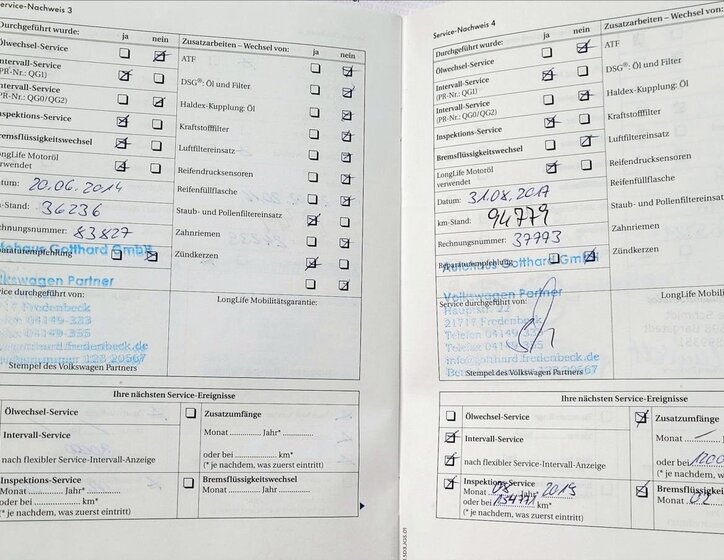 Service-Nachweis 3
Durchgeführt wurde: ja nein
Ölwechsel-Service
Intervall-Service
(PR-Nr.: QG1)
Intervall-Service
(PR-Nr.: QG0/QG2)
Inspektions-Service
Bremsflüssigkeitswechsel
LongLife Motoröl
verwendet
Datum: 20.06.2014
km-Stand: 36236
Rechnungsnummer: 83827
Autohaus Gotthard GmbH
Reparaturempfehlung
Volkswagen Partner
Service durchgeführt von:
21717 Fredenbeck
Telefon 04149-333
Stempel des Volkswagen Partners
Zusatzarbeiten – Wechsel von: ja nein
ATF
DSG®: Öl und Filter
Haldex-Kupplung: Öl
Kraftstofffilter
Luftfiltereinsatz
Reifendrucksensoren
Reifenfüllflasche
Staub- und Pollenfiltereinsatz
Zahnriemen
Zündkerzen
LongLife Mobilitätsgarantie:
Ihre nächsten Service-Ereignisse
Ölwechsel-Service
Intervall-Service
nach flexibler Service-Intervall-Anzeige
Inspektions-Service
Monat ........... Jahr* ...........
oder bei ........... km*
(* je nachdem, was zuerst eintritt)
Zusatzumfänge
Monat ........... Jahr* ...........
oder bei ........... km*
(* je nachdem, was zuerst eintritt)
Bremsflüssigkeitswechsel
Monat ........... Jahr ...........
Service-Nachweis 4
Durchgeführt wurde: ja nein
Ölwechsel-Service
Intervall-Service
(PR-Nr.: QG1)
Intervall-Service
(PR-Nr.: QG0/QG2)
Inspektions-Service
Bremsflüssigkeitswechsel
LongLife Motoröl
verwendet
Datum: 31.08.2017
km-Stand: 94779
Rechnungsnummer: 37793
Reparaturempfehlung
Autohaus Gotthard GmbH
Volkswagen Partner
Service durchgeführt von:
Hauptstr. 22
21717 Fredenbeck
Telefon 04149-333
Telefax 04149-355
info@gotthard.fredenbeck.de
Stempel des Volkswagen Partners
Zusatzarbeiten – Wechsel von:
ATF
DSG®: Öl und Filter
Haldex-Kupplung: Öl
Kraftstofffilter
Luftfiltereinsatz
Reifendrucksensoren
Reifenfüllflasche
Staub- und Pollenfiltereinsatz
Zahnriemen
Zündkerzen
LongLife Mobi
Ihre nächsten Service-Ereignisse
Ölwechsel-Service
Intervall-Service
nach flexibler Service-Intervall-Anzeige
Inspektions-Service
Monat 08 Jahr* 2019
oder bei km*
(* je nachdem, was zuerst eintritt)
Zusatzumfänge
Monat
oder bei
(* je nachdem, was
Bremsflüssig
Monat